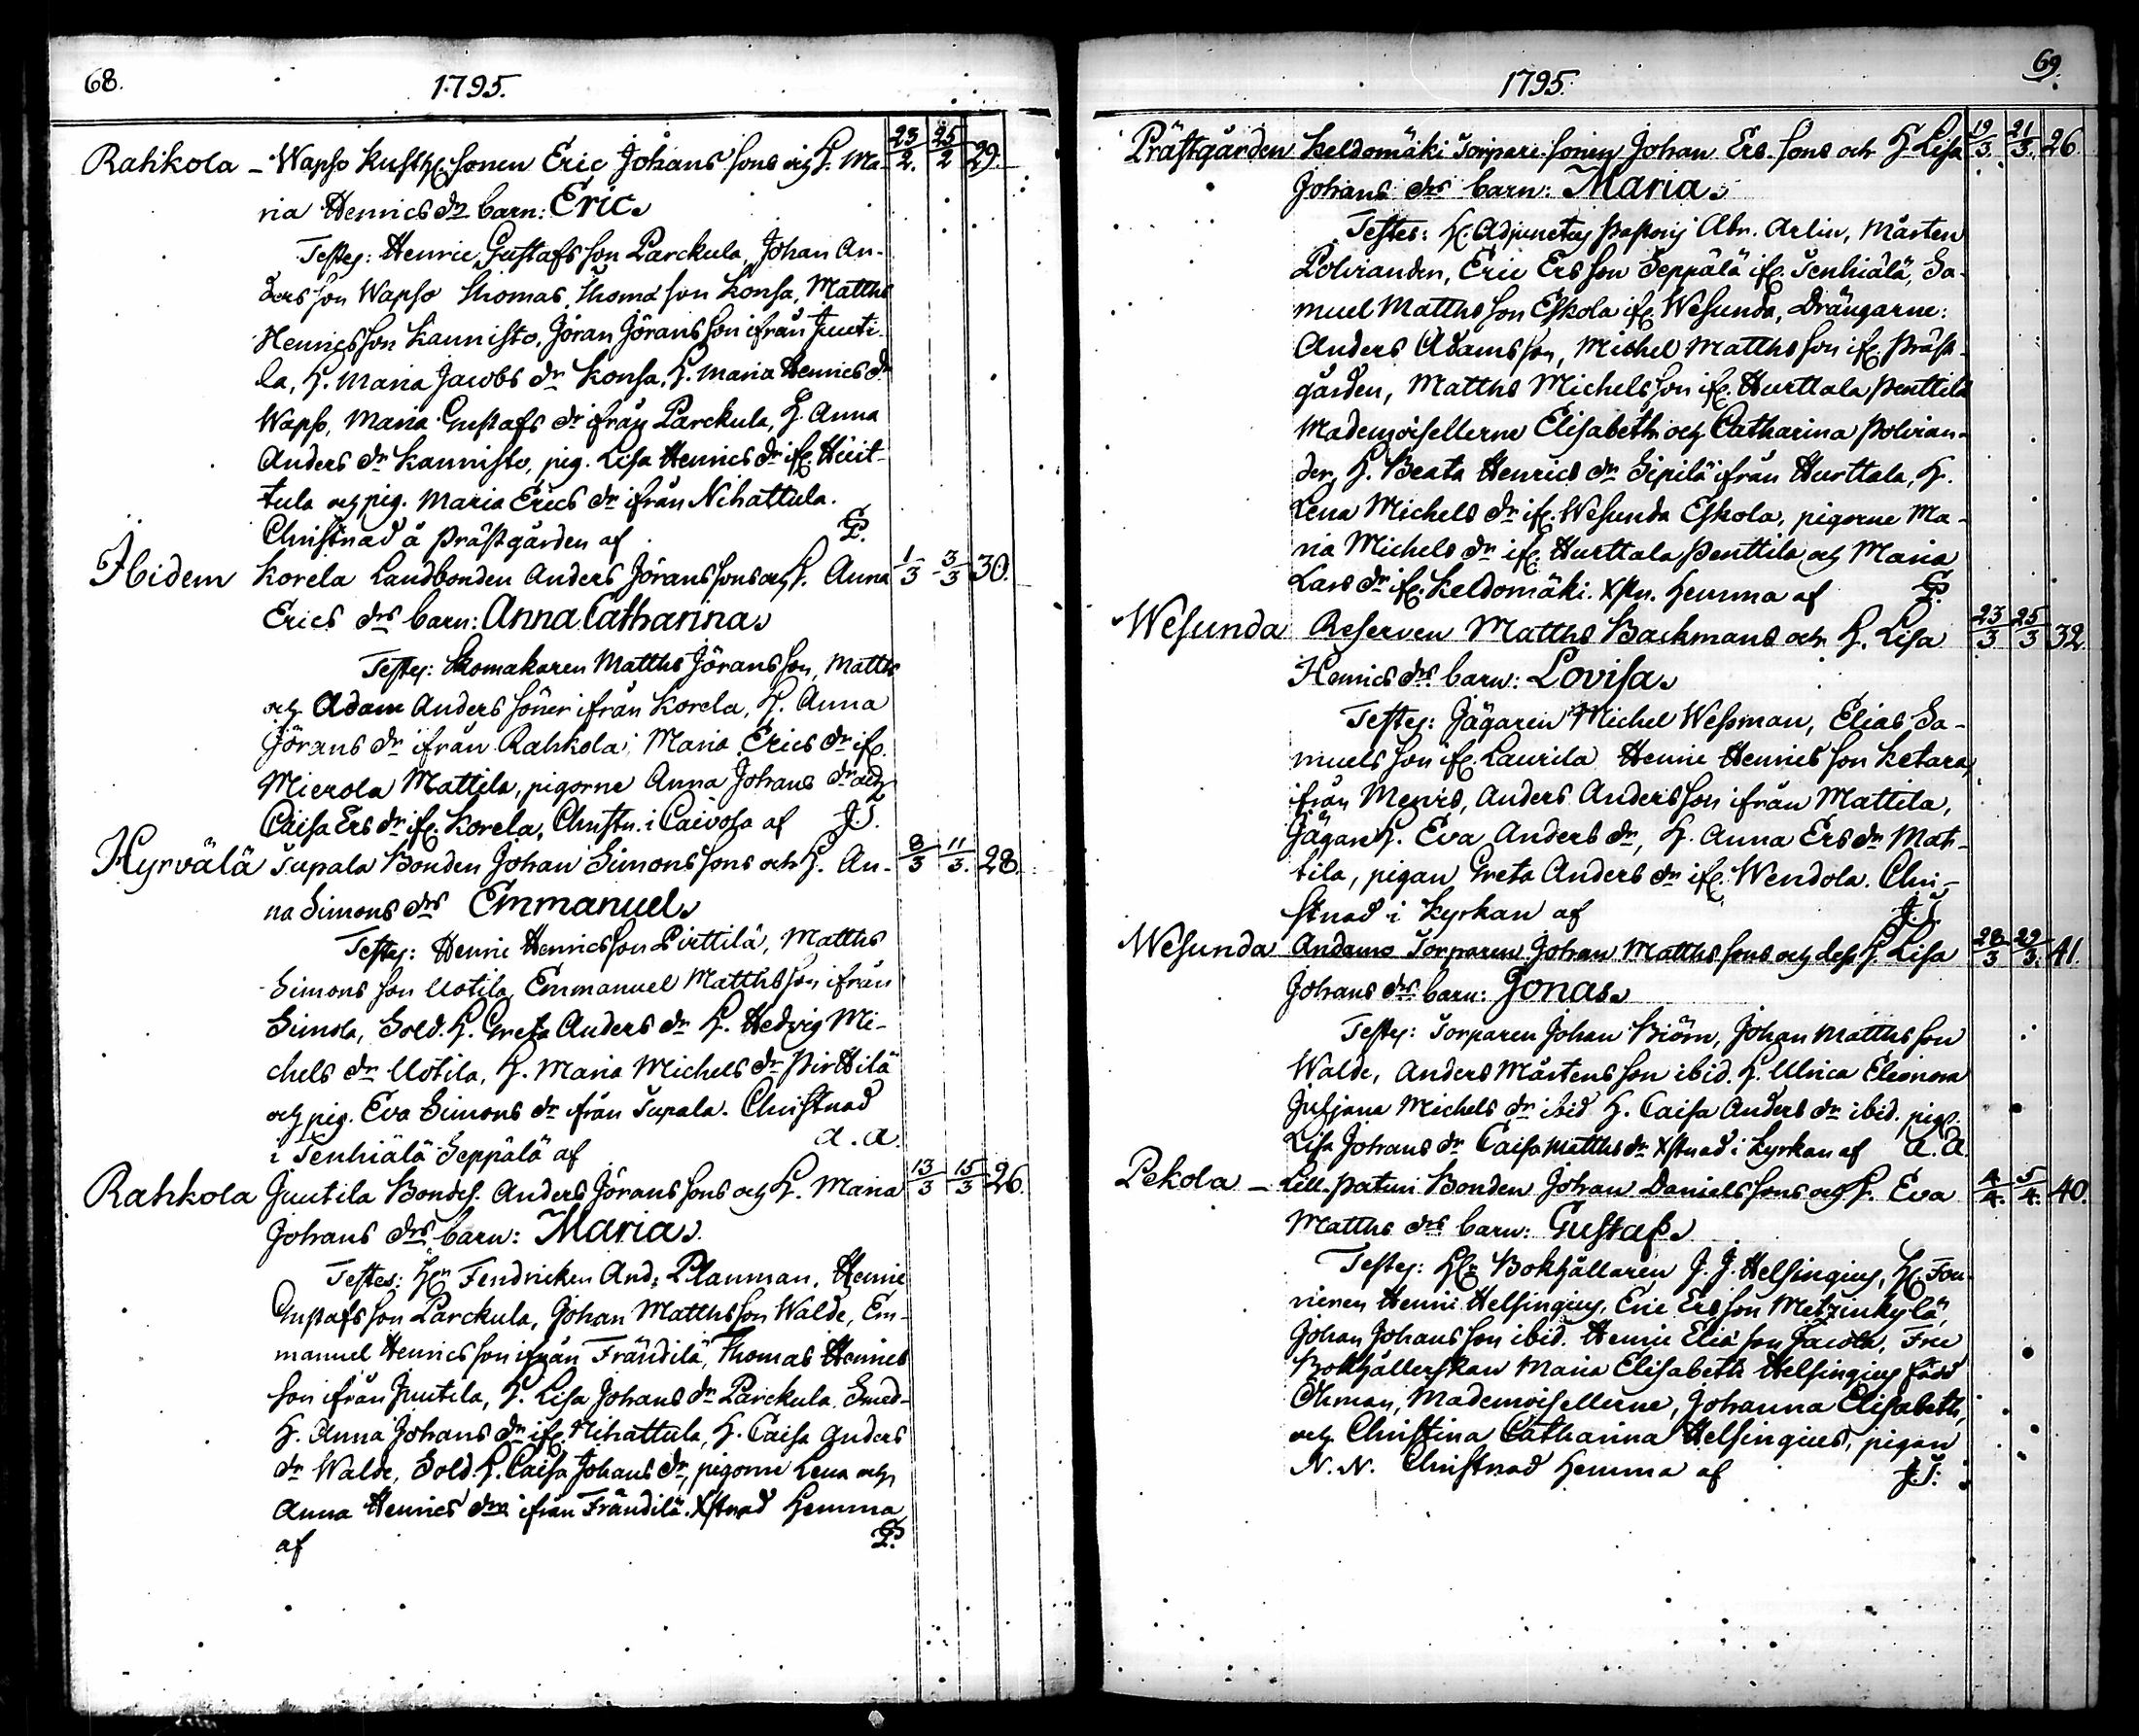 68.
1795.
Rahkola - Wapso Kusthz. sonen Eric Johans sons och H. Ma- 23/2. 25/2 29.
ria Henrics drs barn: Eric.
Testes: Henric Gustafsson Parckula, Johan An-
dersson Wapso Thomas Thomasson Konsa, Matths
Henricsson Kannisto, Jöran Jöransson ifrån Juuti-
la, H. Maria Jacobs dr Konsa, H. Maria Henrics dr
Wapso, Maria Gustafs dr ifrån Parckula, H. Anna
Anders dr Kannisto, pig. Lisa Henrics dr ifr.
tula och pig. Maria Erics dr ifrån Nihattula.
Christnad å Prästgården af
Ibidem Korela Landbonden Anders Jöranssons och H. Anna 1/3 3/3 30.
Erics drs barn: Anna Catharina.
Testes: Skomakaren Matths Jöransson, Matths
och Adam Anders söner ifrån Korela, H. Anna
Jörans dr ifrån Rahkola, Maria Erics dr ifr.
Mierola Mattila, pigorne Anna Johans dr och
Caisa Ers dr ifr. Korela, Christn. i Caivosa af J.T.
Hyrvälä Tupala Bonden Johan Simons sons och H. An- 8/3 11/3. 28.
na Simons drs Emmanuel.
Testes: Henric Henricsson Pirttilä, Matths
Simons son Uotila, Emmanuel Matthsson ifrån
Simola, Sold. H. Greta Anders dr H. Hedvig Mi-
chels dr Uotila, H. Maria Michels dr Pirttilä
och pig. Eva Simons dr från Tupala. Christnad
i Tenhiälä Seppälä af A.A.
Rahkola Juutila Bondes. Anders Jörans sons och H. Maria 13/3 15/3 26.
Johans drs barn: Maria.
Testes: Hr Fendricken And: Planman, Henric
Gustafsson Parckula, Johan Matthsson Walde, Em-
manuel Henricsson ifrån Frändilä, Thomas Henrics
son ifrån Juutila, H. Lisa Johans dr Parckula, Smed-
H. Anna Johans dr ifr. Nihattula, H. Caisa Anders
dr Walde, Sold. H. Caisa Johans dr, pigorne Lena och
Anna Henrics drar ifrån Frändilä. Xstnad hemma
af
1795.
69.
Prästgården Keldomäki Torpare sonen Johan Ers. sons och H Lisa 19/3. 21/3. 26.
Johans drs barn: Maria.
Testes: H. Adjunctus Pastoris Abr. Arlin, Mårten
Polviander, Eric Ersson Seppälä ifr. Tenhiälä, Sa-
muel Matthsson Eskola ifr. Wesunda, Drängarne:
Anders Adamsson, Michel Matthsson ifr. Präst-
gården, Matths Michelsson ifr. Hurttala Penttilä
Mademoisellerne Elisabeth och Catharina Polvian-
der, H. Beata Henrics dr Sipilä ifrån Hurttala, H.
Lena Michels dr ifr. Wesunda Eskola, pigorne Ma-
ria Michels dr ifr. Hurttala Penttila och Maria
Lars dr ifr. Keldomäki. Xstn. hemma af
Wesunda Reserven Matths Backmans och H. Lisa 23/3 25/3 32.
Henrics drs barn: Lovisa.
Testes: Jägaren Michel Wessman, Elias Sa-
muelsson ifr. Laurila Henric Henricsson Ketara,
ifrån Monis, Anders Andersson ifrån Mattila,
Jägar H. Eva Anders dr, H. Anna Ers dr Mat-
tila, pigan Greta Anders dr ifr. Wendola. Chri-
stnad i Kyrkan af J.T.
Wesunda Andamo Torparen Johan Matths sons och dess H. Lisa 28/3 29/3. 41.
Johans drs barn: Jonas.
Testes: Torparen Johan Biörn, Johan Matthsson
Walde, Anders Mårtensson ibid. H. Ulrica Eleonora
Juljana Michels dr ibid H. Caisa Anders dr ibid. pig.
Lisa Johans dr Caisa Matths dr Xstnad i Kyrkan af A.A.
Pekola - Lill-Paturi Bonden Johan Daniels sons och H. Eva 4/4. 5/4. 40.
Matths drs barn: Gustaf.
Testes: Hr Bokhållaren J. J. Helsingius, H. Fou-
rieren Henric Helsingius, Eric Ersson Metzinkylä,
Johan Johansson ibid. Henric Elisson Jacola, Fru
Bokhållerskan Maria Elisabeth Helsingius född
Öhman, Mademoisellerne, Johanna Elisabeth,
och Christina Catharina Helsingius, pigan
N. N. Christnad hemma af J.T.